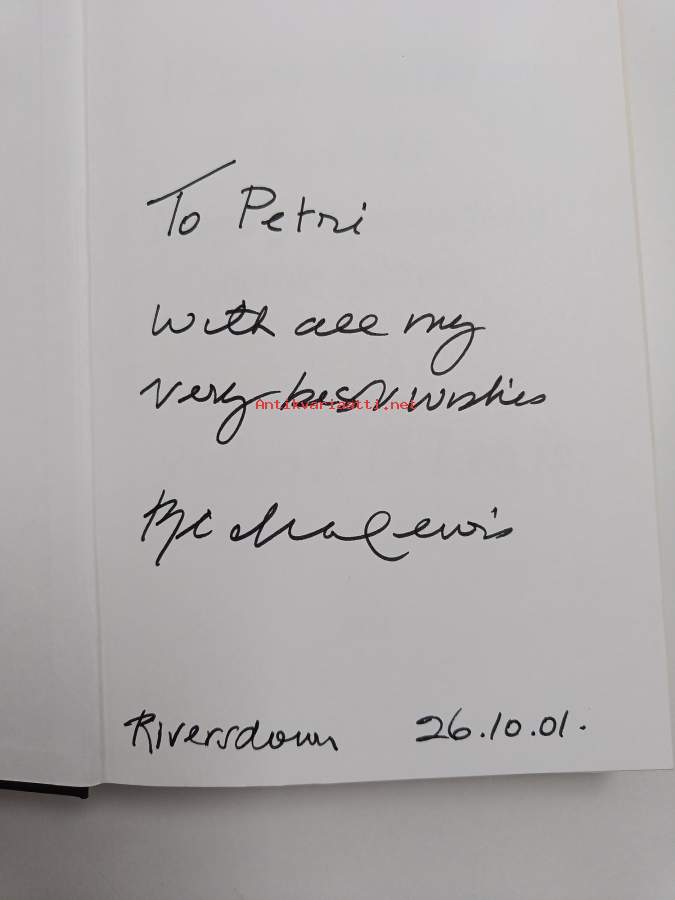 To Petri
with all my
very best wishes
Antikvariaatti.net
Richard Lewis
Riversdown 26.10.01.